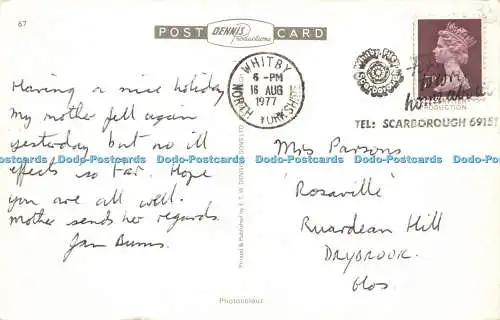 67
POST DENNIS Productions CARD
WHITBY
6-PM
16 AUG
1977
NORTH YORKSHIRE
TEL: SCARBOROUGH 69151
Having a nice holiday
My mother fell again
yesterday but no ill
effects so far. Hope
you are all well.
Mother sends her regards.
Mrs Parsons
'Rosaville'
Ruardean Hill
DRYBROOK
Glos.
Printed & Published by E. T. W. DENNIS & SONS LTD
Photocolour
Dodo-Postcards Dodo-Postcards Dodo-Postcards Dodo-Postcards